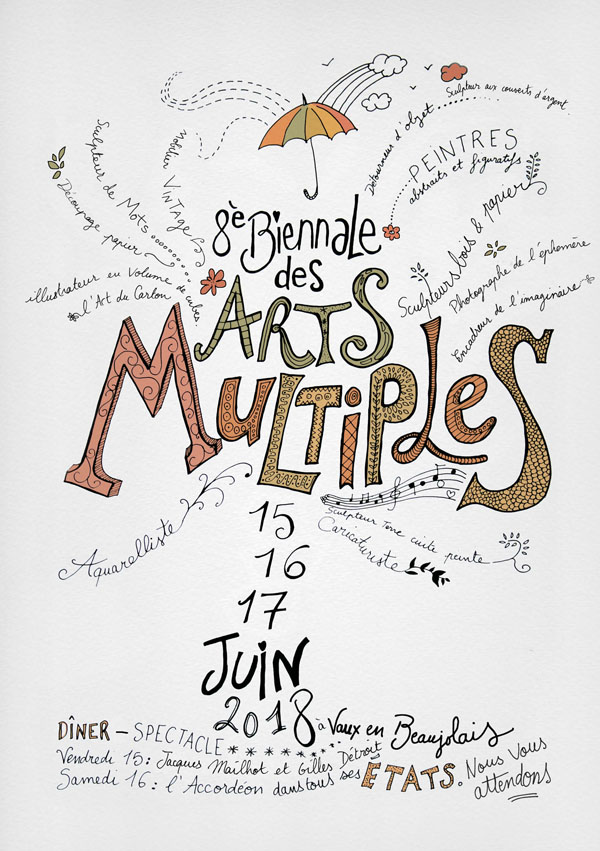 Sculpteur aux couverts d'argent
Détourneur d'objet
PEINTRES
abstraits et figuratifs
Mobilier VINTAGE
Sculpteur de Mots
Découpage papier
illustrateur en Volume de cubes
l'Art du Carton
8è Biennale
des
ARTS
MULTIPLES
Sculpteurs bois & papier
Photographe de l'éphémère
Encadreur de l'imaginaire
Aquarelliste
Sculpteur Terre cuite peinte
Caricaturiste
15
16
17
JUIN
2018 à Vaux en Beaujolais
DÎNER – SPECTACLE
Vendredi 15 : Jacques Mailhot et Gilles Détroit
Samedi 16 : l'Accordéon dans tous ses ÉTATS. Nous Vous
attendons